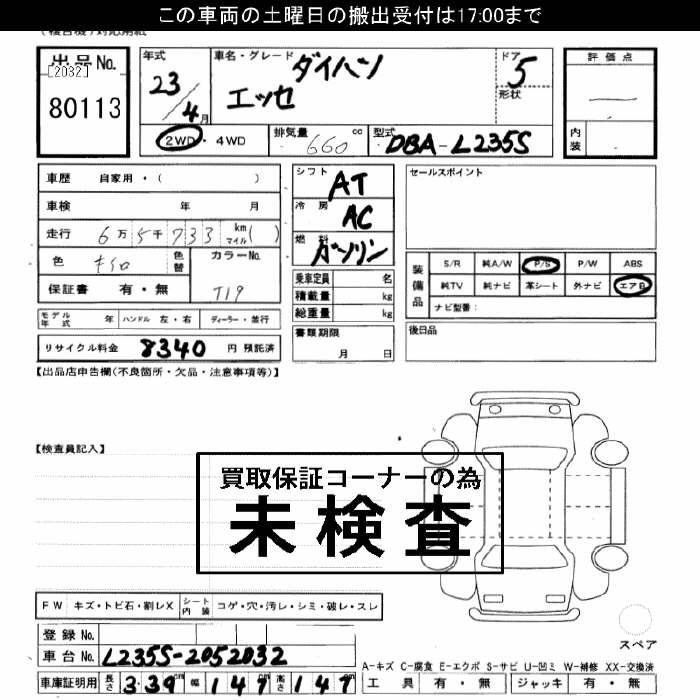 この車両の土曜日の搬出受付は17:00まで
出品No.
[2032]
80113
年式
23
4月
車名・グレード
ダイハツ
エッセ
ドア
5
形状
評価点
内装
2WD・4WD
排気量
660 cc
型式
DBA-L235S
車歴 自家用・( )
車検 年 月
走行 6万5千733 km マイル ( )
色 キイロ 色替
カラーNo.
T19
保証書 有・無
モデル年式 年 ハンドル 左・右 ディーラー・並行
リサイクル料金 8340 円 預託済
シフト
AT
冷房
AC
燃料
ガソリン
乗車定員 名
積載量 kg
総重量 kg
書類期限
月 日
セールスポイント
装備品
S/R 純A/W P/S P/W ABS
純TV 純ナビ 革シート 外ナビ エアB
ナビ型番:
後日品
【出品店申告欄(不良箇所・欠品・注意事項等)】
【検査員記入】
買取保証コーナーの為
未検査
FW キズ・トビ石・割レX シート内装 コゲ・穴・汚レ・シミ・破レ・スレ
登録No.
車台No. L235S-2052032
車庫証明用 長さ 3.39 cm 幅 147 cm 高さ 147
スペア
A-キズ C-腐食 E-エクボ S-サビ U-凹ミ W-補修 XX-交換済
工具 有・無 ジャッキ 有・無